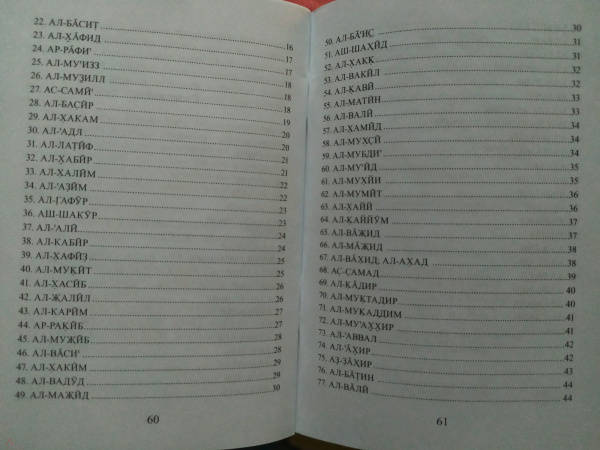 22. АЛ-БĀСИṬ 16
23. АЛ-Х̣ĀФИД 17
24. АР-РĀФИ' 17
25. АЛ-МУ'ИЗЗ 17
26. АЛ-МУЗ̣ИЛЛ 18
27. АС-САМӢ' 18
28. АЛ-БАС̣ӢР 18
29. АЛ-Х̣АКАМ 19
30. АЛ-'АДЛ 20
31. АЛ-ЛАṬӢФ 20
32. АЛ-Х̣АБӢР 21
33. АЛ-Х̣АЛӢМ 21
34. АЛ-'АЗ̣ӢМ 22
35. АЛ-ҒАФӮР 22
36. АШ-ШАКӮР 23
37. АЛ-'АЛӢ 24
38. АЛ-КАБӢР 24
39. АЛ-Х̣АФӢЗ̣ 25
40. АЛ-МУҚӢТ 25
41. АЛ-Х̣АСӢБ 26
42. АЛ-ҖАЛӢЛ 26
43. АЛ-КАРӢМ 26
44. АР-РАҚӢБ 27
45. АЛ-МУҖӢБ 28
46. АЛ-ВĀСИ' 28
47. АЛ-Х̣АКӢМ 28
48. АЛ-ВАДӮД 29
49. АЛ-МАҖӢД 30
60
50. АЛ-БĀ'ИС̱ 30
51. АШ-ШАХӢД 31
52. АЛ-Х̣АҚҚ 31
53. АЛ-ВАКӢЛ 32
54. АЛ-ҚАВӢ 32
55. АЛ-МАТӢН 33
56. АЛ-ВАЛӢ 33
57. АЛ-Х̣АМӢД 34
58. АЛ-МУХ̣С̣Ӣ 34
59. АЛ-МУБДИ' 34
60. АЛ-МУ'ӢД 35
61. АЛ-МУХ̣ЙИ 35
62. АЛ-МУМӢТ 36
63. АЛ-Х̣АЙЙ 36
64. АЛ-ҚАЙЙӮМ 37
65. АЛ-ВĀҖИД 37
66. АЛ-МĀҖИД 38
67. АЛ-ВĀХ̣ИД; АЛ-АХ̣АД 38
68. АС̣-С̣АМАД 39
69. АЛ-ҚĀДИР 40
70. АЛ-МУҚТАДИР 40
71. АЛ-МУҚАДДИМ 41
72. АЛ-МУ'АХ̮Х̮ИР 41
73. АЛ-'АВВАЛ 42
74. АЛ-'ĀХ̮ИР 42
75. АЗ̣-З̣ĀХИР 43
76. АЛ-БĀṬИН 44
77. АЛ-ВĀЛӢ 44
61